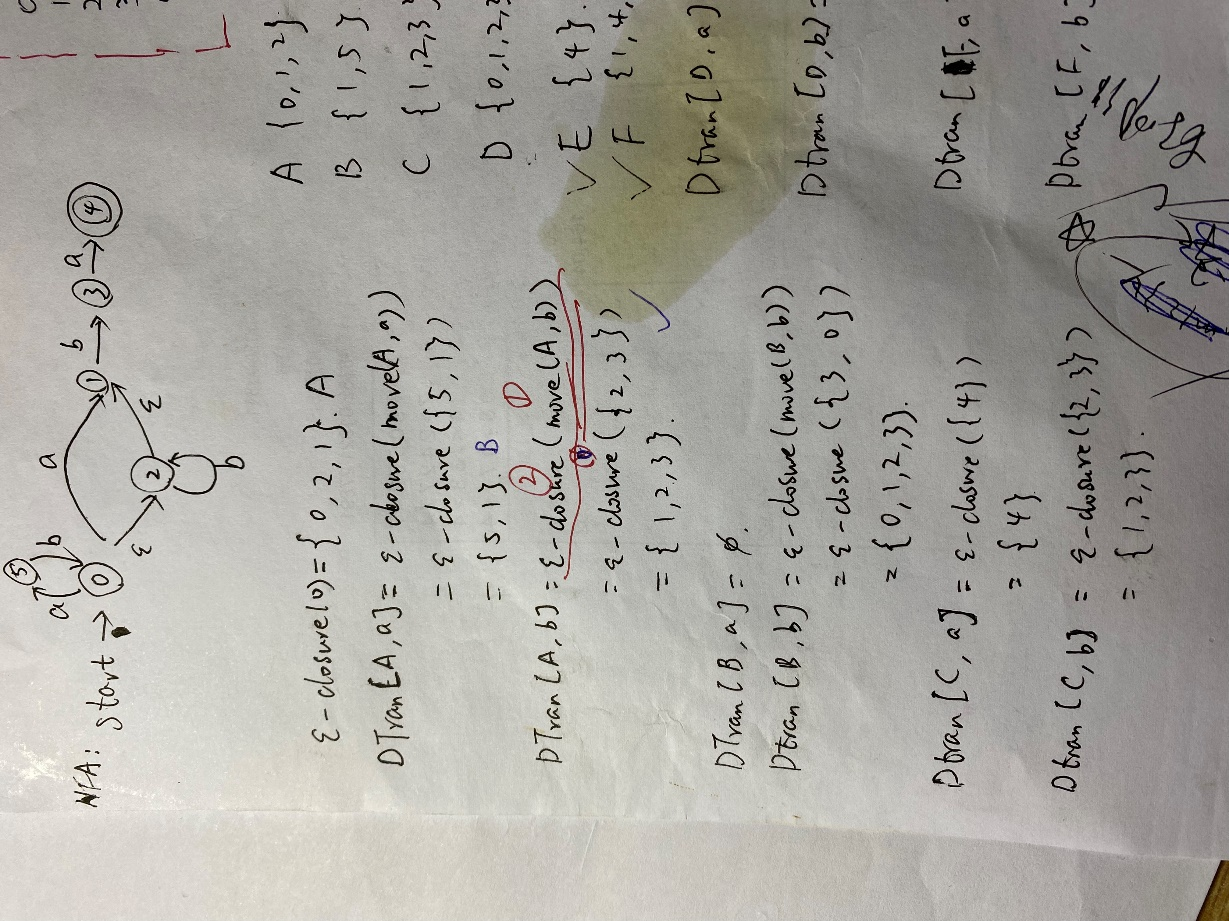 NFA: start → 0 a 5 b a 1 b 3 a 4
ε 2 ε b
ε-closure(0) = { 0, 2, 1 }. A
DTran[A, a] = ε-closure(move(A, a))
= ε-closure ({5, 1})
= {5, 1}. B
② ①
DTran[A, b] = ε-closure (move(A, b))
= ε-closure ({ 2, 3 })
= { 1, 2, 3 }.
DTran[B, a] = ø.
Dtran [B, b] = ε-closure(move(B, b))
= ε-closure ({ 3, 0 })
= { 0, 1, 2, 3 }.
Dtran [C, a] = ε-closure ({4})
= {4}
Dtran [C, b] = ε-closure ({2, 3})
= {1, 2, 3}.
A {0, 1, 2}
B {1, 5}
C {1, 2, 3
D {0, 1, 2, 3
✓ E {4}.
✓ F {1, 4,
Dtran [D, a]
Dtran [D, b] =
Dtran [E, a
Dtran [F, b]